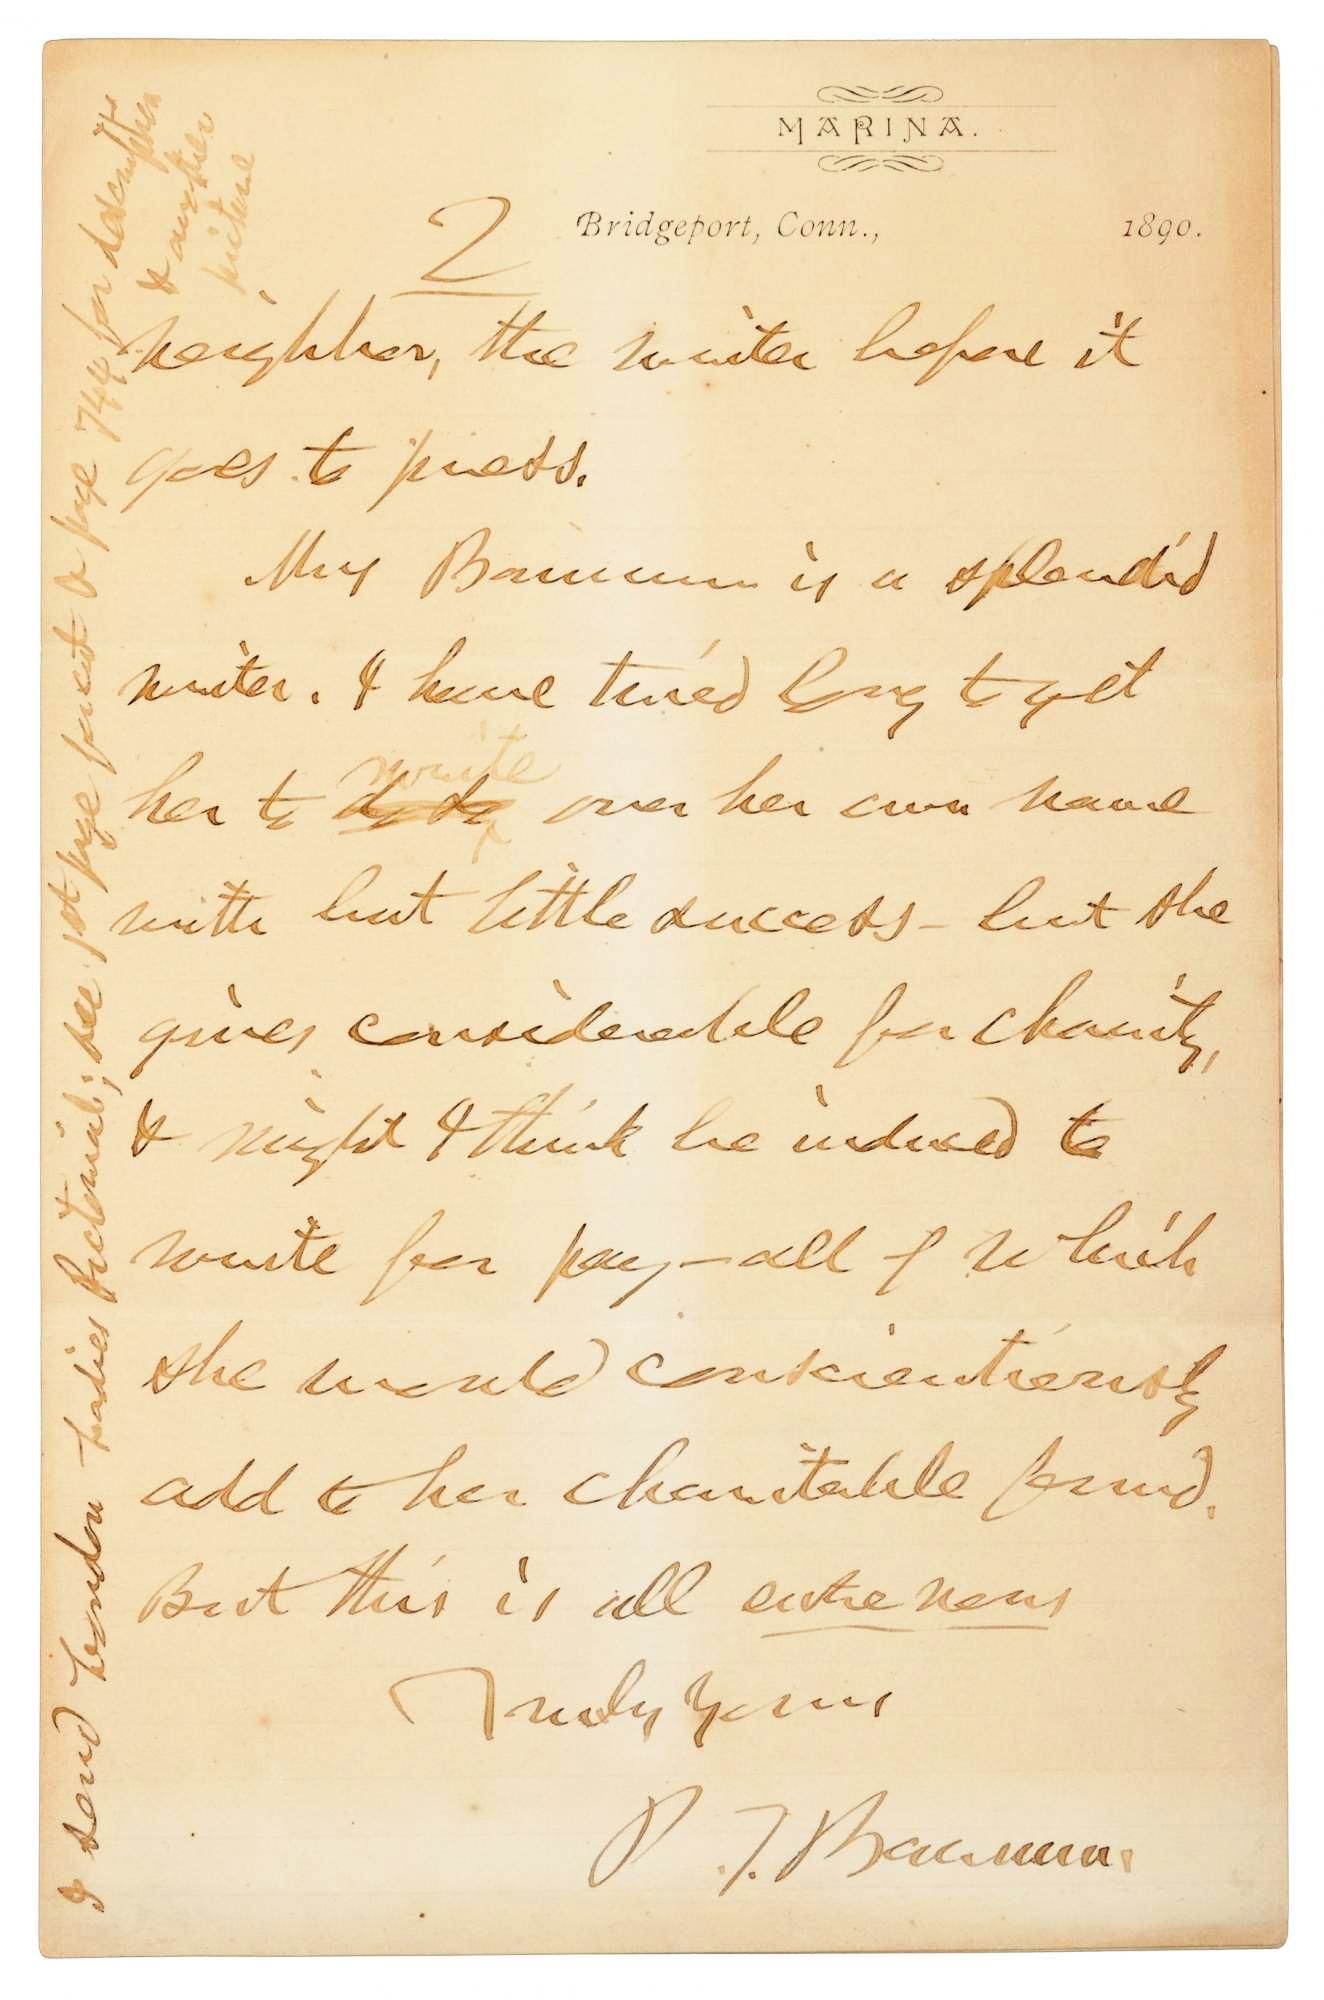 MARINA.
Bridgeport, Conn., 1890.
2
neighbor, the writer before it
goes to press.
Mrs Barnum is a splendid
writer. I have tried long to get
her to do so write over her own name
with but little success - but she
gives considerable for charity,
& might I think be induced to
write for pay - all of which
she would conscientiously
add to her charitable fund.
But this is all entre nous
Truly yours
P. T. Barnum.
I send London Ladies Pictorial; see 1st page & page 744 for description
& another
picture